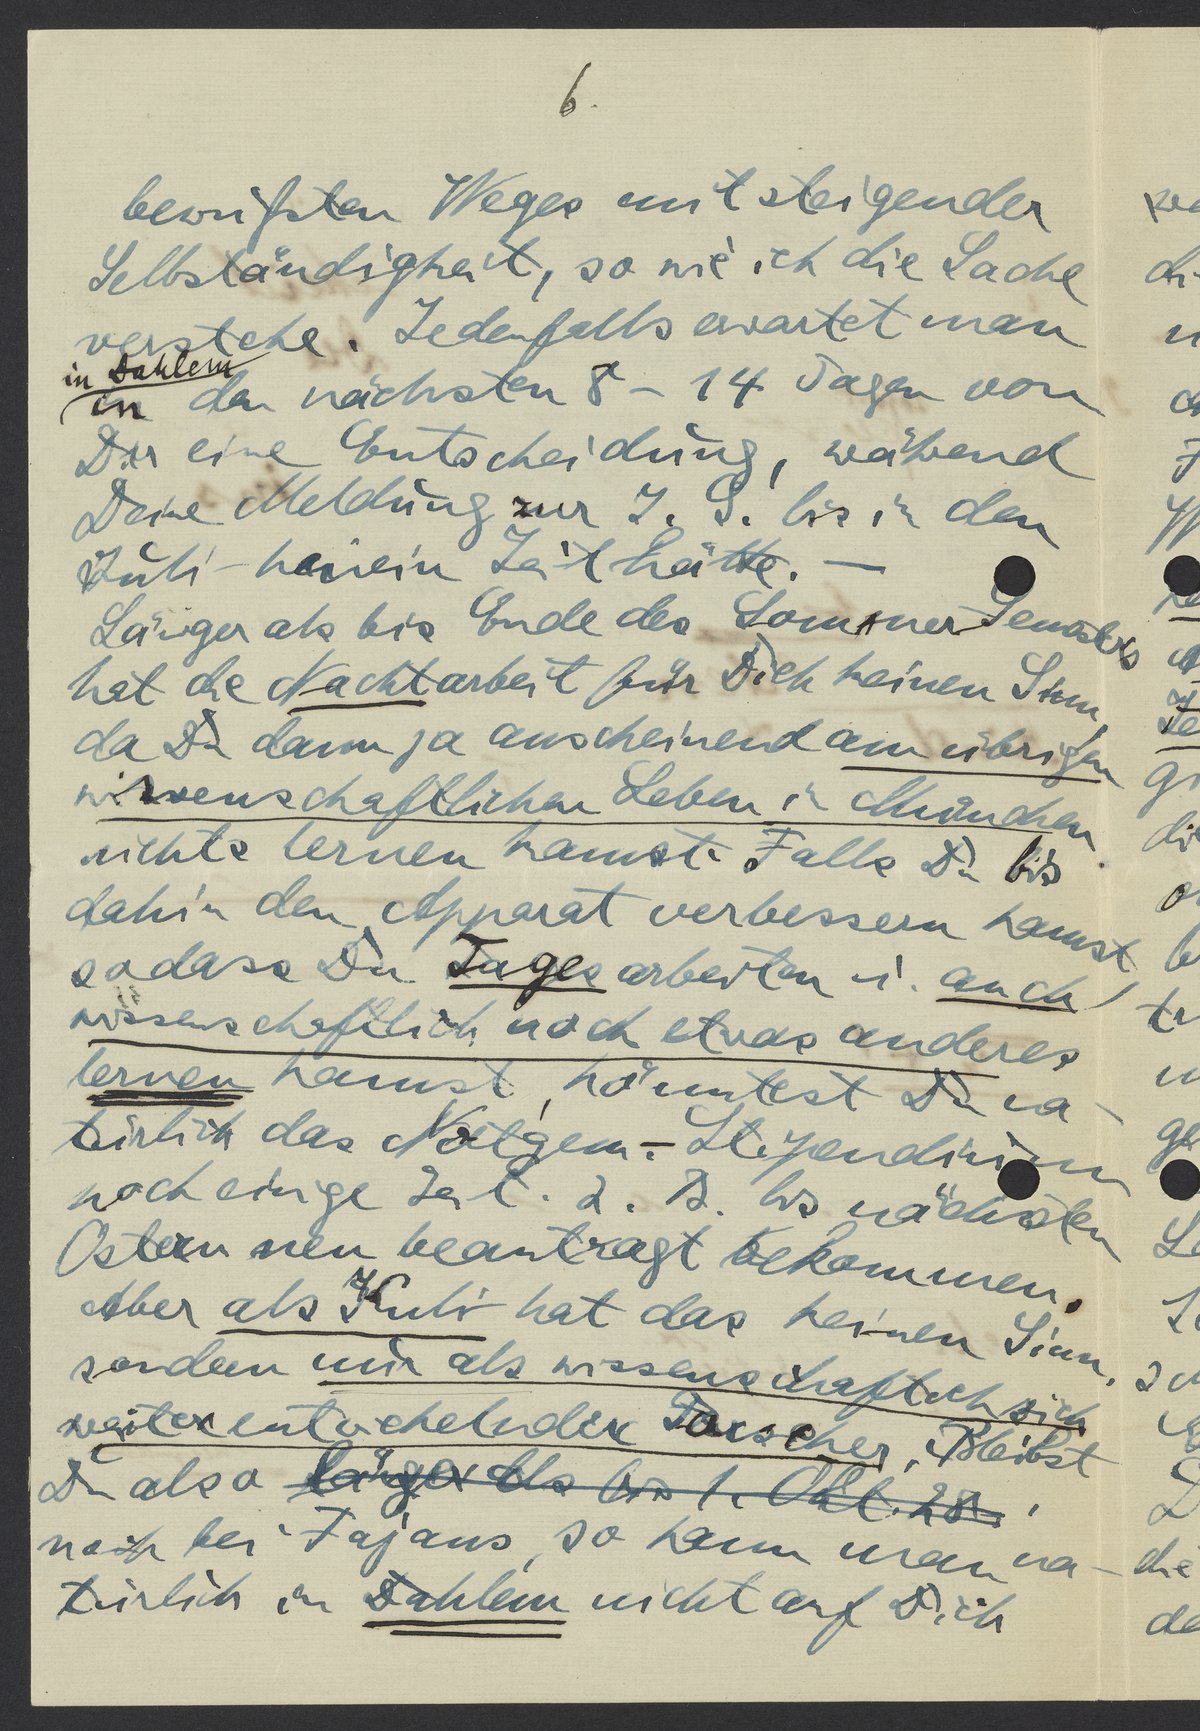 6.
bewußten Weges mit steigender
Selbständigkeit, so wie ich die Sache
verstehe. Jedenfalls erwartet man
in Dahlem
in den nächsten 8 – 14 Tagen von
Dir eine Entscheidung, während
Deine Meldung zur I. G. bis in den
Juli hinein Zeit hätte. —
Länger als bis Ende des Sommer-Semesters
hat die Nachtarbeit für Dich keinen Sinn,
da Du dann ja anscheinend am übrigen
wissenschaftlichen Leben in München
nichts lernen kannst. Falls Du bis
dahin den Apparat verbessern kannst
sodass Du Tages arbeiten u. auch
wissenschaftlich noch etwas anderes
lernen kannst, könntest Du na-
türlich das Notgem.-Stipendium
noch einige Zeit z. B. bis nächsten
Ostern neu beantragt bekommen.
Aber als Kuli hat das keinen Sinn,
sondern nur als wissenschaftlich sich
weiter entwickelnder Forscher. Bleibst
Du also länger als bis 1. Okt. 28.
noch bei Fajans, so kann man na-
türlich in Dahlem nicht auf Dich